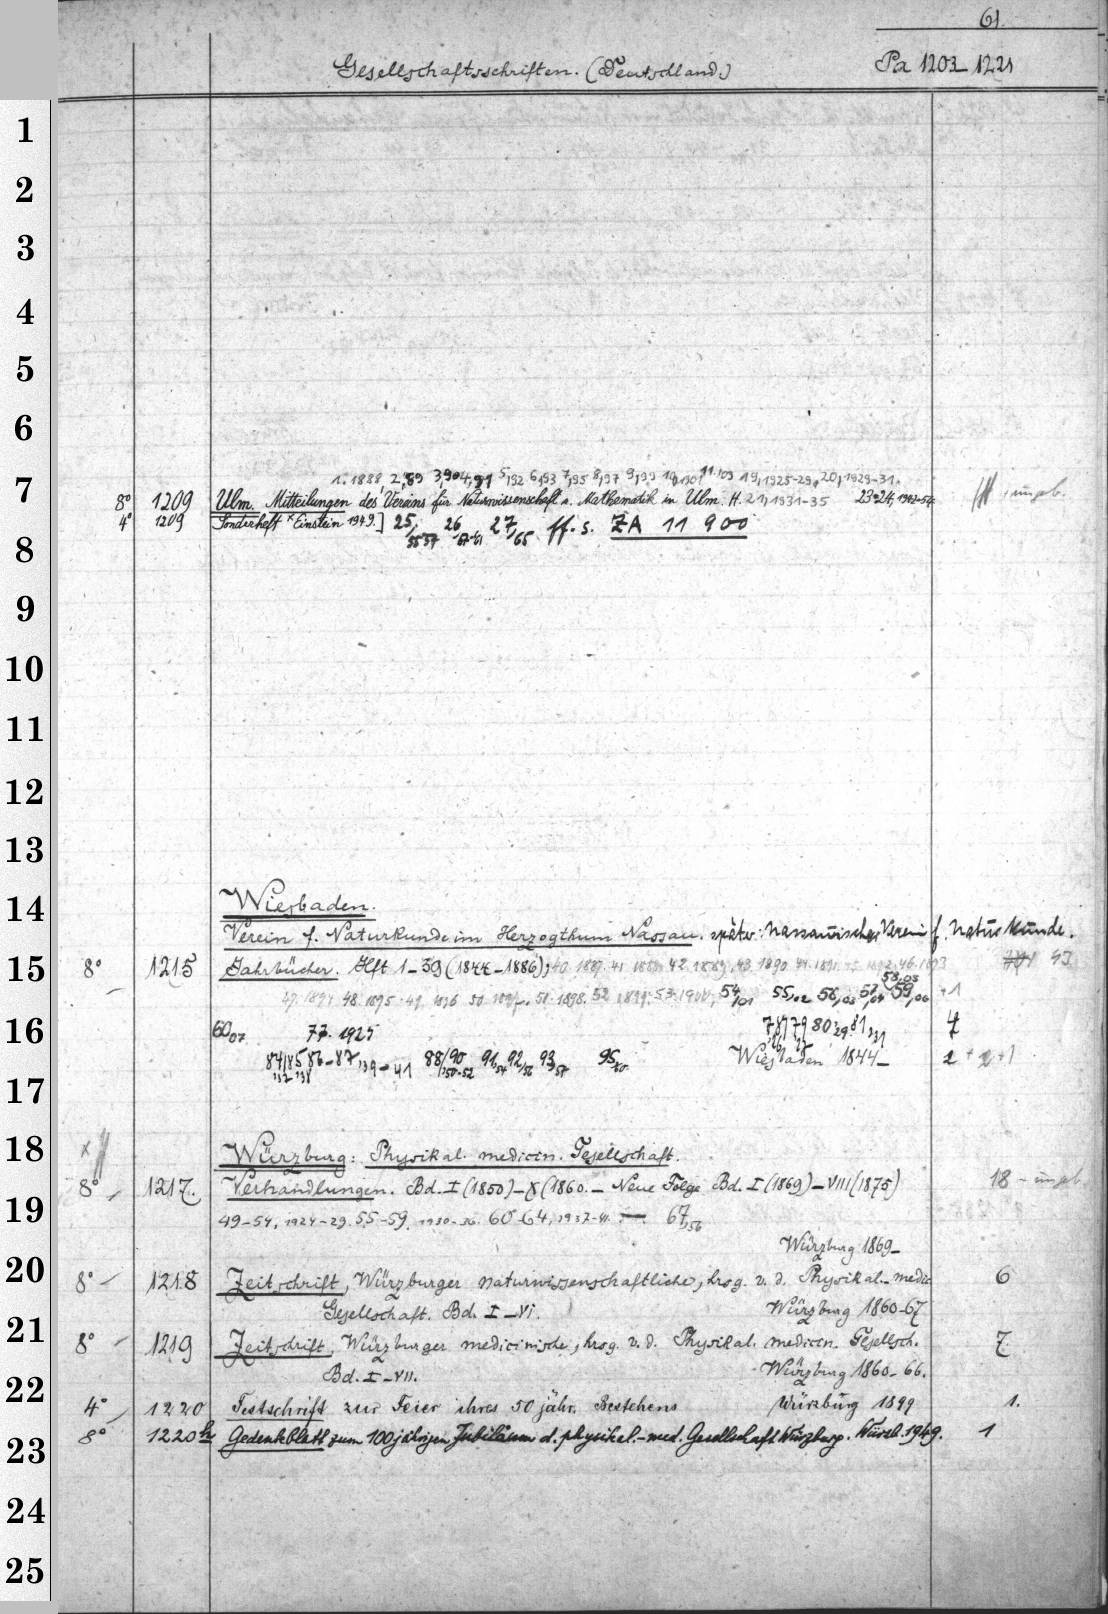 61.
Gesellschaftsschriften. (Deutschland.) Pa 1203–1221
1
2
3
4
5
6
7
1. 1888 2,89 3,90 4,91 5,92 6,93 7,95 8,97 9,99 10,1901 11.03 19,1925-29, 20,1929-31.
8° 1209 Ulm. Mitteilungen des Vereins für Naturwissenschaft u. Mathematik in Ulm. H. 21,1931-35 23+24, 1942-54 + ungeb.
4° 1209 Sonderheft Einstein 1949.] 25, 26, 27, ff. s. ZA 11 900
55-57 57-61 65
8
9
10
11
12
13
14
Wiesbaden.
Verein f. Naturkunde im Herzogthum Nassau. später: Nassauischer Verein f. Naturkunde.
15
8° 1215 Jahrbücher. Hft 1–39 (1844–1886); 40 1887. 41 1888 42.1889. 43.1890 44.1891. 45 1892. 46.1893 43
58,05
47.1894 48.1895. 49. 1896 50 1897. 51.1898. 52 1899. 53.1900, 54,01 55,02 56,03 57,04 59,06 +1
16
60,07 77. 1925 78/79 80,29 81,31 4
84/85 86–87,39–41 88/90 91,54 92,56 93,57 95,60 Wiesbaden 1844– 2 + 2 + 1
17
18
Würzburg: Physikal. medicin. Gesellschaft.
8° 1217. Verhandlungen. Bd. I (1850)–X (1860.– Neue Folge Bd. I (1869)–VIII (1875) 18 – ungeb.
19
49-54, 1924-29. 55-59, 1930-36. 60-64, 1937-41. 67,56
Würzburg 1869–
20
8° 1218 Zeitschrift, Würzburger naturwissenschaftliche, hrsg. v. d. Physikal.-medic 6
Gesellschaft. Bd. I–VI. Würzburg 1860-67
21
8° 1219 Zeitschrift, Würzburger medicinische, hrsg. v. d. Physikal. medicin. Gesellsch. 7
Bd. I–VII. Würzburg 1860-66.
22
4° 1220 Festschrift zur Feier ihres 50 jähr. Bestehens Würzburg 1899 1.
8° 1220h Gedenkblatt zum 100jährigen Jubiläum d. physikal.-med. Gesellschaft Würzburg. Würzb. 1949. 1
23
24
25